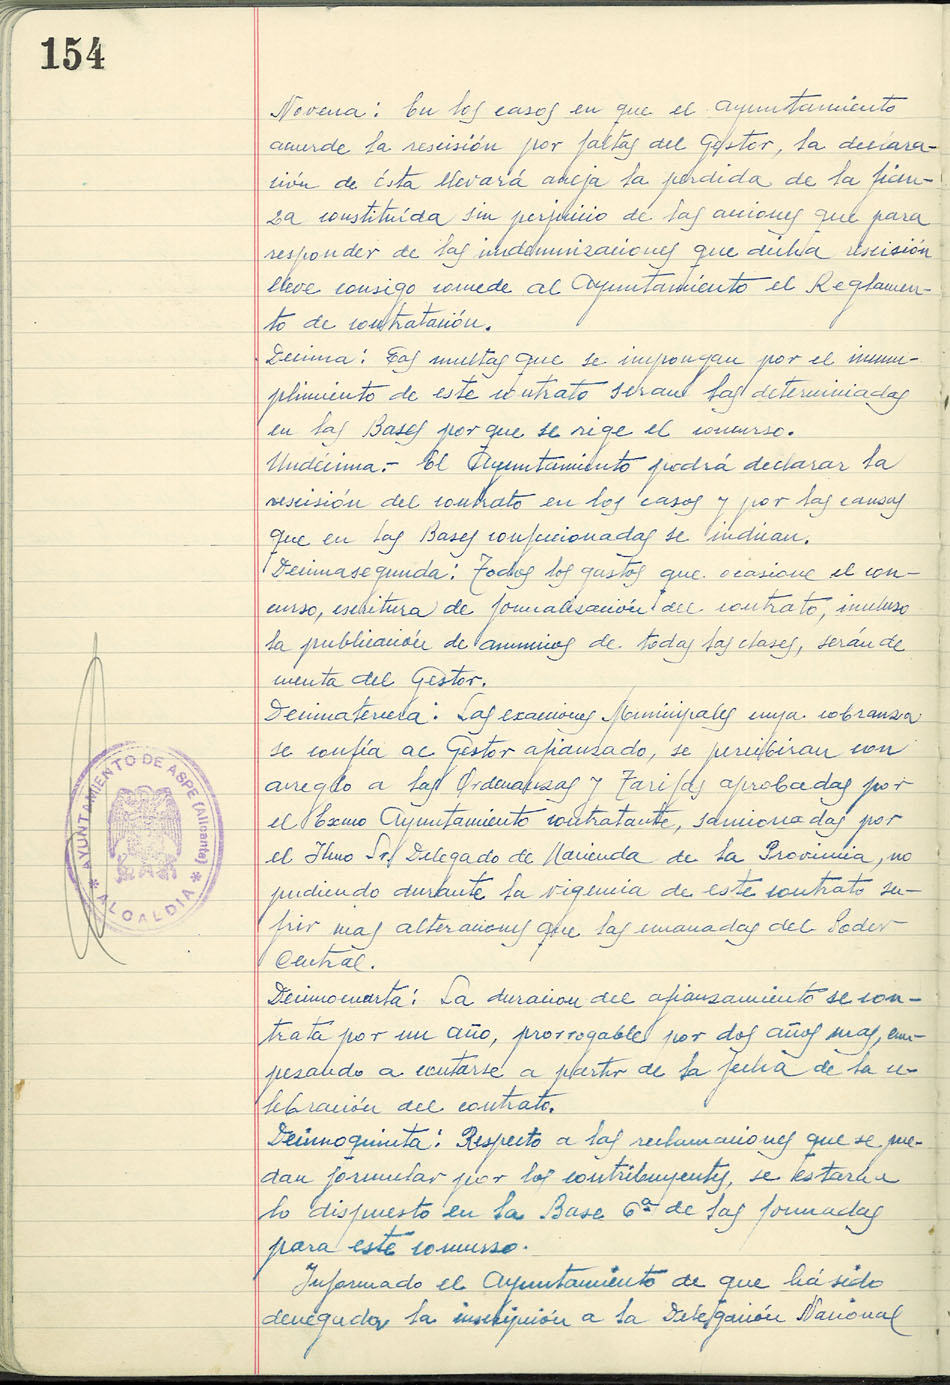 154
Novena: En los casos en que el Ayuntamiento
acuerde la rescisión por faltas del Gestor, la declara-
ción de ésta llevará aneja la perdida de la fian-
za constituída sin perjuicio de las acciones que para
responder de las indemnizaciones que dicha rescisión
lleve consigo concede al Ayuntamiento el Reglamen-
to de contratación.
Decima: Las multas que se impongan por el incum-
plimiento de este contrato seran las determinadas
en las Bases porque se rige el concurso.
Undécima.- El Ayuntamiento podrá declarar la
rescisión del contrato en los casos y por las causas
que en las Bases confeccionadas se indican.
Decimasegunda: Todos los gastos que ocasione el con-
curso, escritura de formalización del contrato, incluso
la publicación de anuncios de todas las clases, serán de
cuenta del Gestor.
Decimatercera: Las exacciones Municipales cuya cobranza
se confía al Gestor afianzado, se percibiran con
arreglo a las Ordenanzas y Tarifas aprobadas por
el Excmo Ayuntamiento contratante, sancionadas por
el Iltmo Sr. Delegado de Hacienda de la Provincia, no
pudiendo durante la vigencia de este contrato su-
frir mas alteraciones que las emanadas del Poder
Central.
Decimocuarta: La duracion del afianzamiento se con-
trata por un año, prorrogable por dos años mas, em-
pezando a contarse a partir de la fecha de la ce-
lebración del contrato.
Decimoquinta: Respecto a las reclamaciones que se pue-
dan formular por los contribuyentes, se estará a
lo dispuesto en la Base 6ª de las formadas
para este concurso.
Informado el Ayuntamiento de que há sido
denegada la inscripción a la Delegación Nacional
AYUNTAMIENTO DE ASPE (Alicante)
* ALCALDIA *